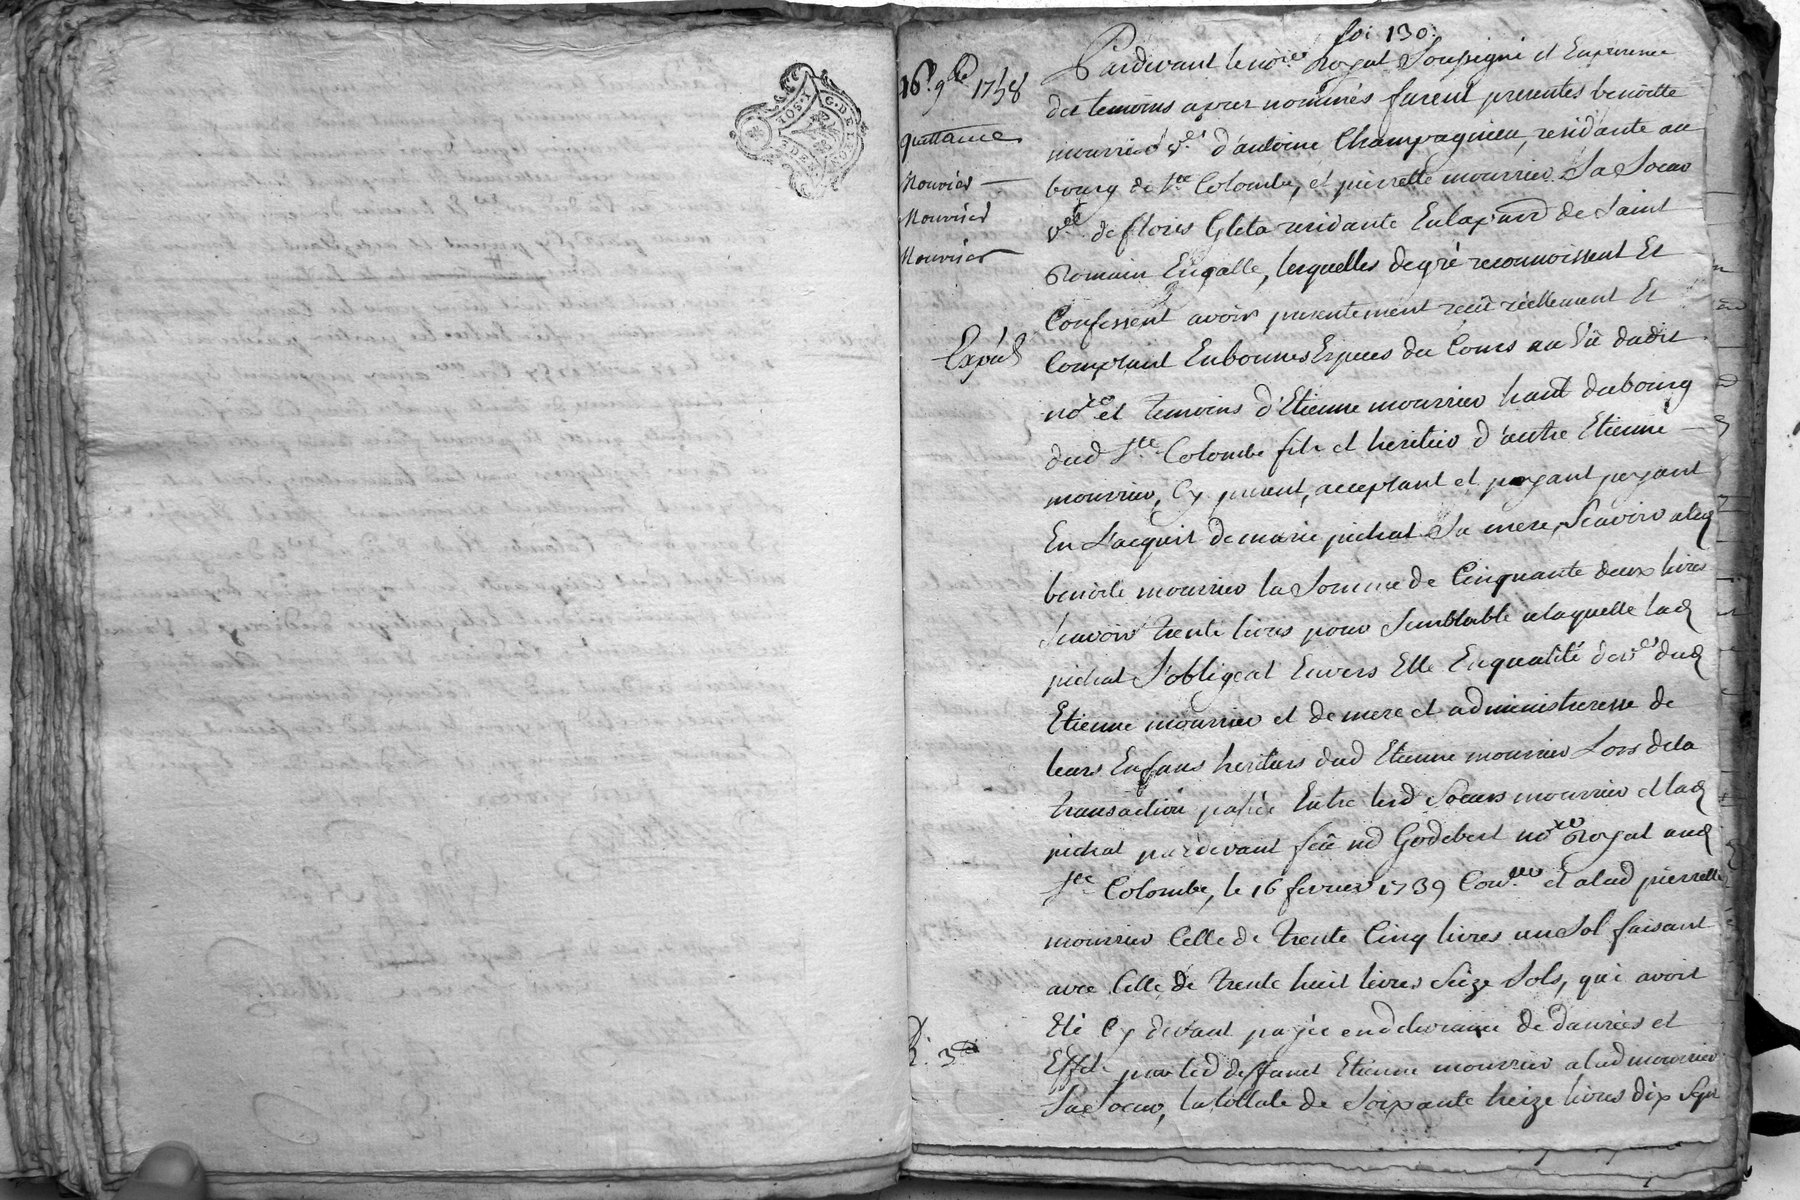 fol 130.
16. 9bre 1758
quittance
Mourier
Mourier
Mourier
Expéd
R. 3
Pardevant le nore Royal Soussigné et En presence
des temoins apres nommés furent presentes benoitte
mourrier ve. d'antoine Champagnieu, residante au
bourg de Ste Colombe, et pierrette mourrier Sa Soeur
ve de floris Gleta residante En la parr de Saint
Romain En galle, lesquelles de gré reconnoissent Et
Confessent avoir presentement reçu réellement Et
Comptant En bonnes Especes du Cours au Vû dudit
nore et temoins d'Etienne mourrier hant du bourg
dud Ste Colombe fils et heritier d'autre Etienne
mourrier, Cy present, acceptant et payant payant
En l'acquit de marie pichat Sa mere, Scavoir a lad
benoite mourrier la Somme de Cinquante deux livres
Scavoir trente livres pour Semblable a laquelle lad
pichat S'obligeat Envers Elle En qualité de ve dud
Etienne mourrier et de mere et administreresse de
leurs Enfans heritiers dud Etienne mourrier Lors de la
transaction passée Entre lesd Soeurs mourrier et lad
pichat pardevant feu me Godebert nore Royal aud
Ste Colombe, le 16 fevrier 1739 Con. et a lad pierrette
mourrier Celle de trente Cinq livres un Sol faisant
avec Celle de trente huit livres Seize Sols, qui avoit
Eté Cy devant payée en delivrance de danrées et
Effets par led deffunt Etienne mourrier a lad mourrier
Sa Soeur, la tottale de Soixante treize livres dix Sept